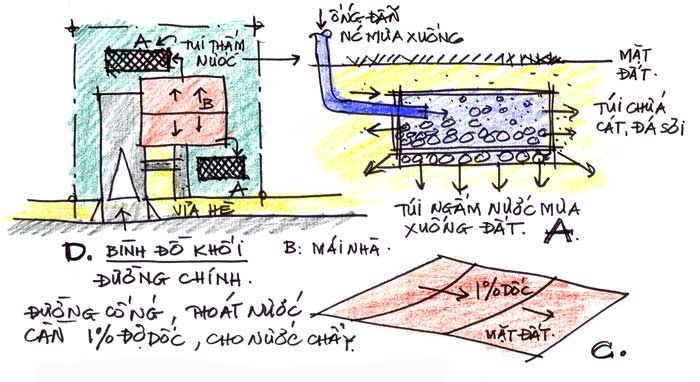 A
TÚI THẤM
NƯỚC
B
A
VỈA HÈ
D. BÌNH ĐỒ KHỐI
ĐƯỜNG CHÍNH.
B: MÁI NHÀ.
ỐNG DẪN
NÓ MƯA XUỐNG
MẶT
ĐẤT.
TÚI CHỨA
CÁT, ĐÁ SỎI
TÚI NGẤM NƯỚC MƯA
XUỐNG ĐẤT. A.
ĐƯỜNG CỐNG, THOÁT NƯỚC
CẦN 1% ĐỘ DỐC, CHO NƯỚC CHẢY.
1% DỐC
MẶT ĐẤT.
C.